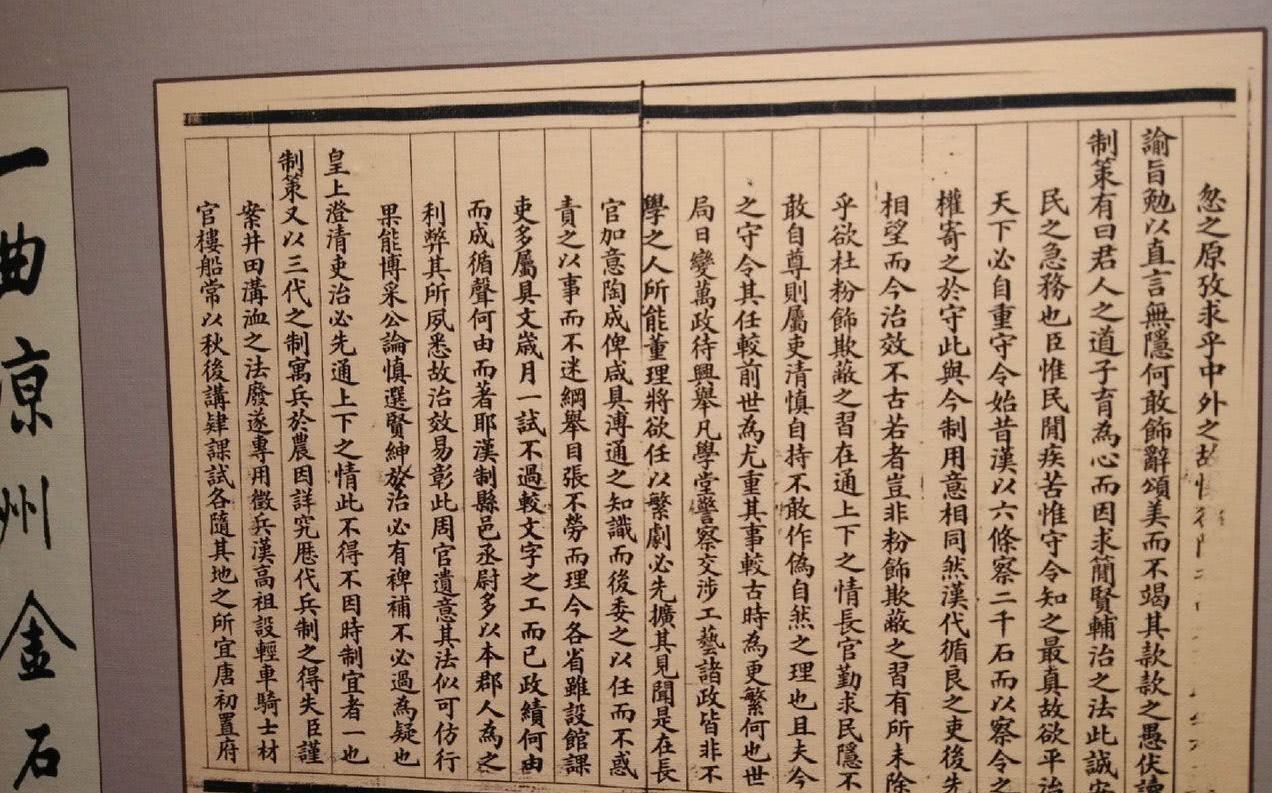 忽之原攷求乎中外之故
諭旨勉以直言無隱何敢飾辭頌美而不竭其款款之愚伏讀
制策有曰君人之道子育為心而因求簡賢輔治之法此誠安
民之急務也臣惟民閒疾苦惟守令知之最真故欲平治
天下必自重守令始昔漢以六條察二千石而以察令之
權寄之於守此與今制用意相同然漢代循良之吏後先
相望而今治效不古若者豈非粉飾欺蔽之習有所未除
乎欲杜粉飾欺蔽之習在通上下之情長官勤求民隱不
敢自尊則屬吏清慎自持不敢作偽自然之理也且夫今
之守令其任較前世為尤重其事較古時為更繁何也世
局日變萬政待興舉凡學堂警察交涉工藝諸政皆非不
學之人所能董理將欲任以繁劇必先擴其見聞是在長
官加意陶成俾咸具溥通之知識而後委之以任而不惑
責之以事而不迷綱舉目張不勞而理今各省雖設館課
吏多屬具文歲月一試不過較文字之工而已政績何由
而成循聲何由而著耶漢制縣邑丞尉多以本郡人為之
利弊其所夙悉故治效易彰此周官遺意其法似可仿行
果能博采公論慎選賢紳於治必有裨補不必過為疑也
皇上澄清吏治必先通上下之情此不得不因時制宜者一也
制策又以三代之制寓兵於農因詳究歷代兵制之得失臣謹
案井田溝洫之法廢遂專用徵兵漢高祖設輕車騎士材
官樓船常以秋後講肄課試各隨其地之所宜唐初置府
一曲凉州金石